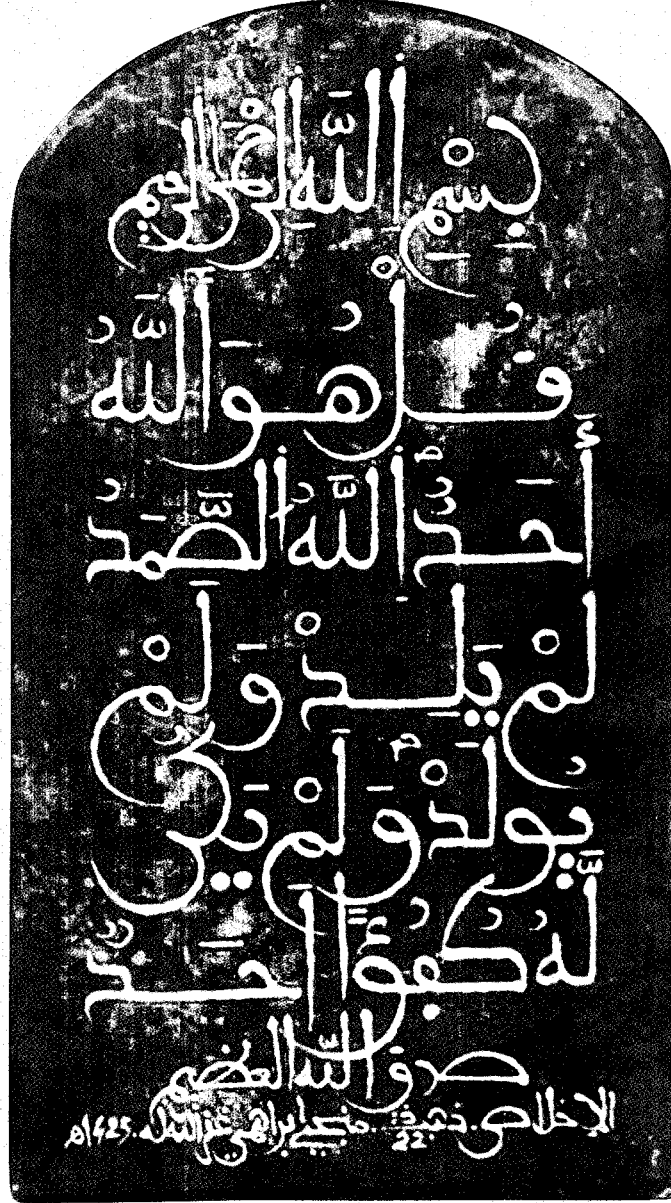 بِسْمِ اللَّهِ الرَّحْمَنِ الرَّحِيمِ
قُلْ هُوَ اللَّهُ
أَحَدٌ اللَّهُ الصَّمَدُ
لَمْ يَلِدْ وَلَمْ
يُولَدْ وَلَمْ يَكُن
لَّهُ كُفُؤًا أَحَدٌ
صدق الله العظيم
الإخلاص. 22 إبراهيم غفر الله له. 1425هـ